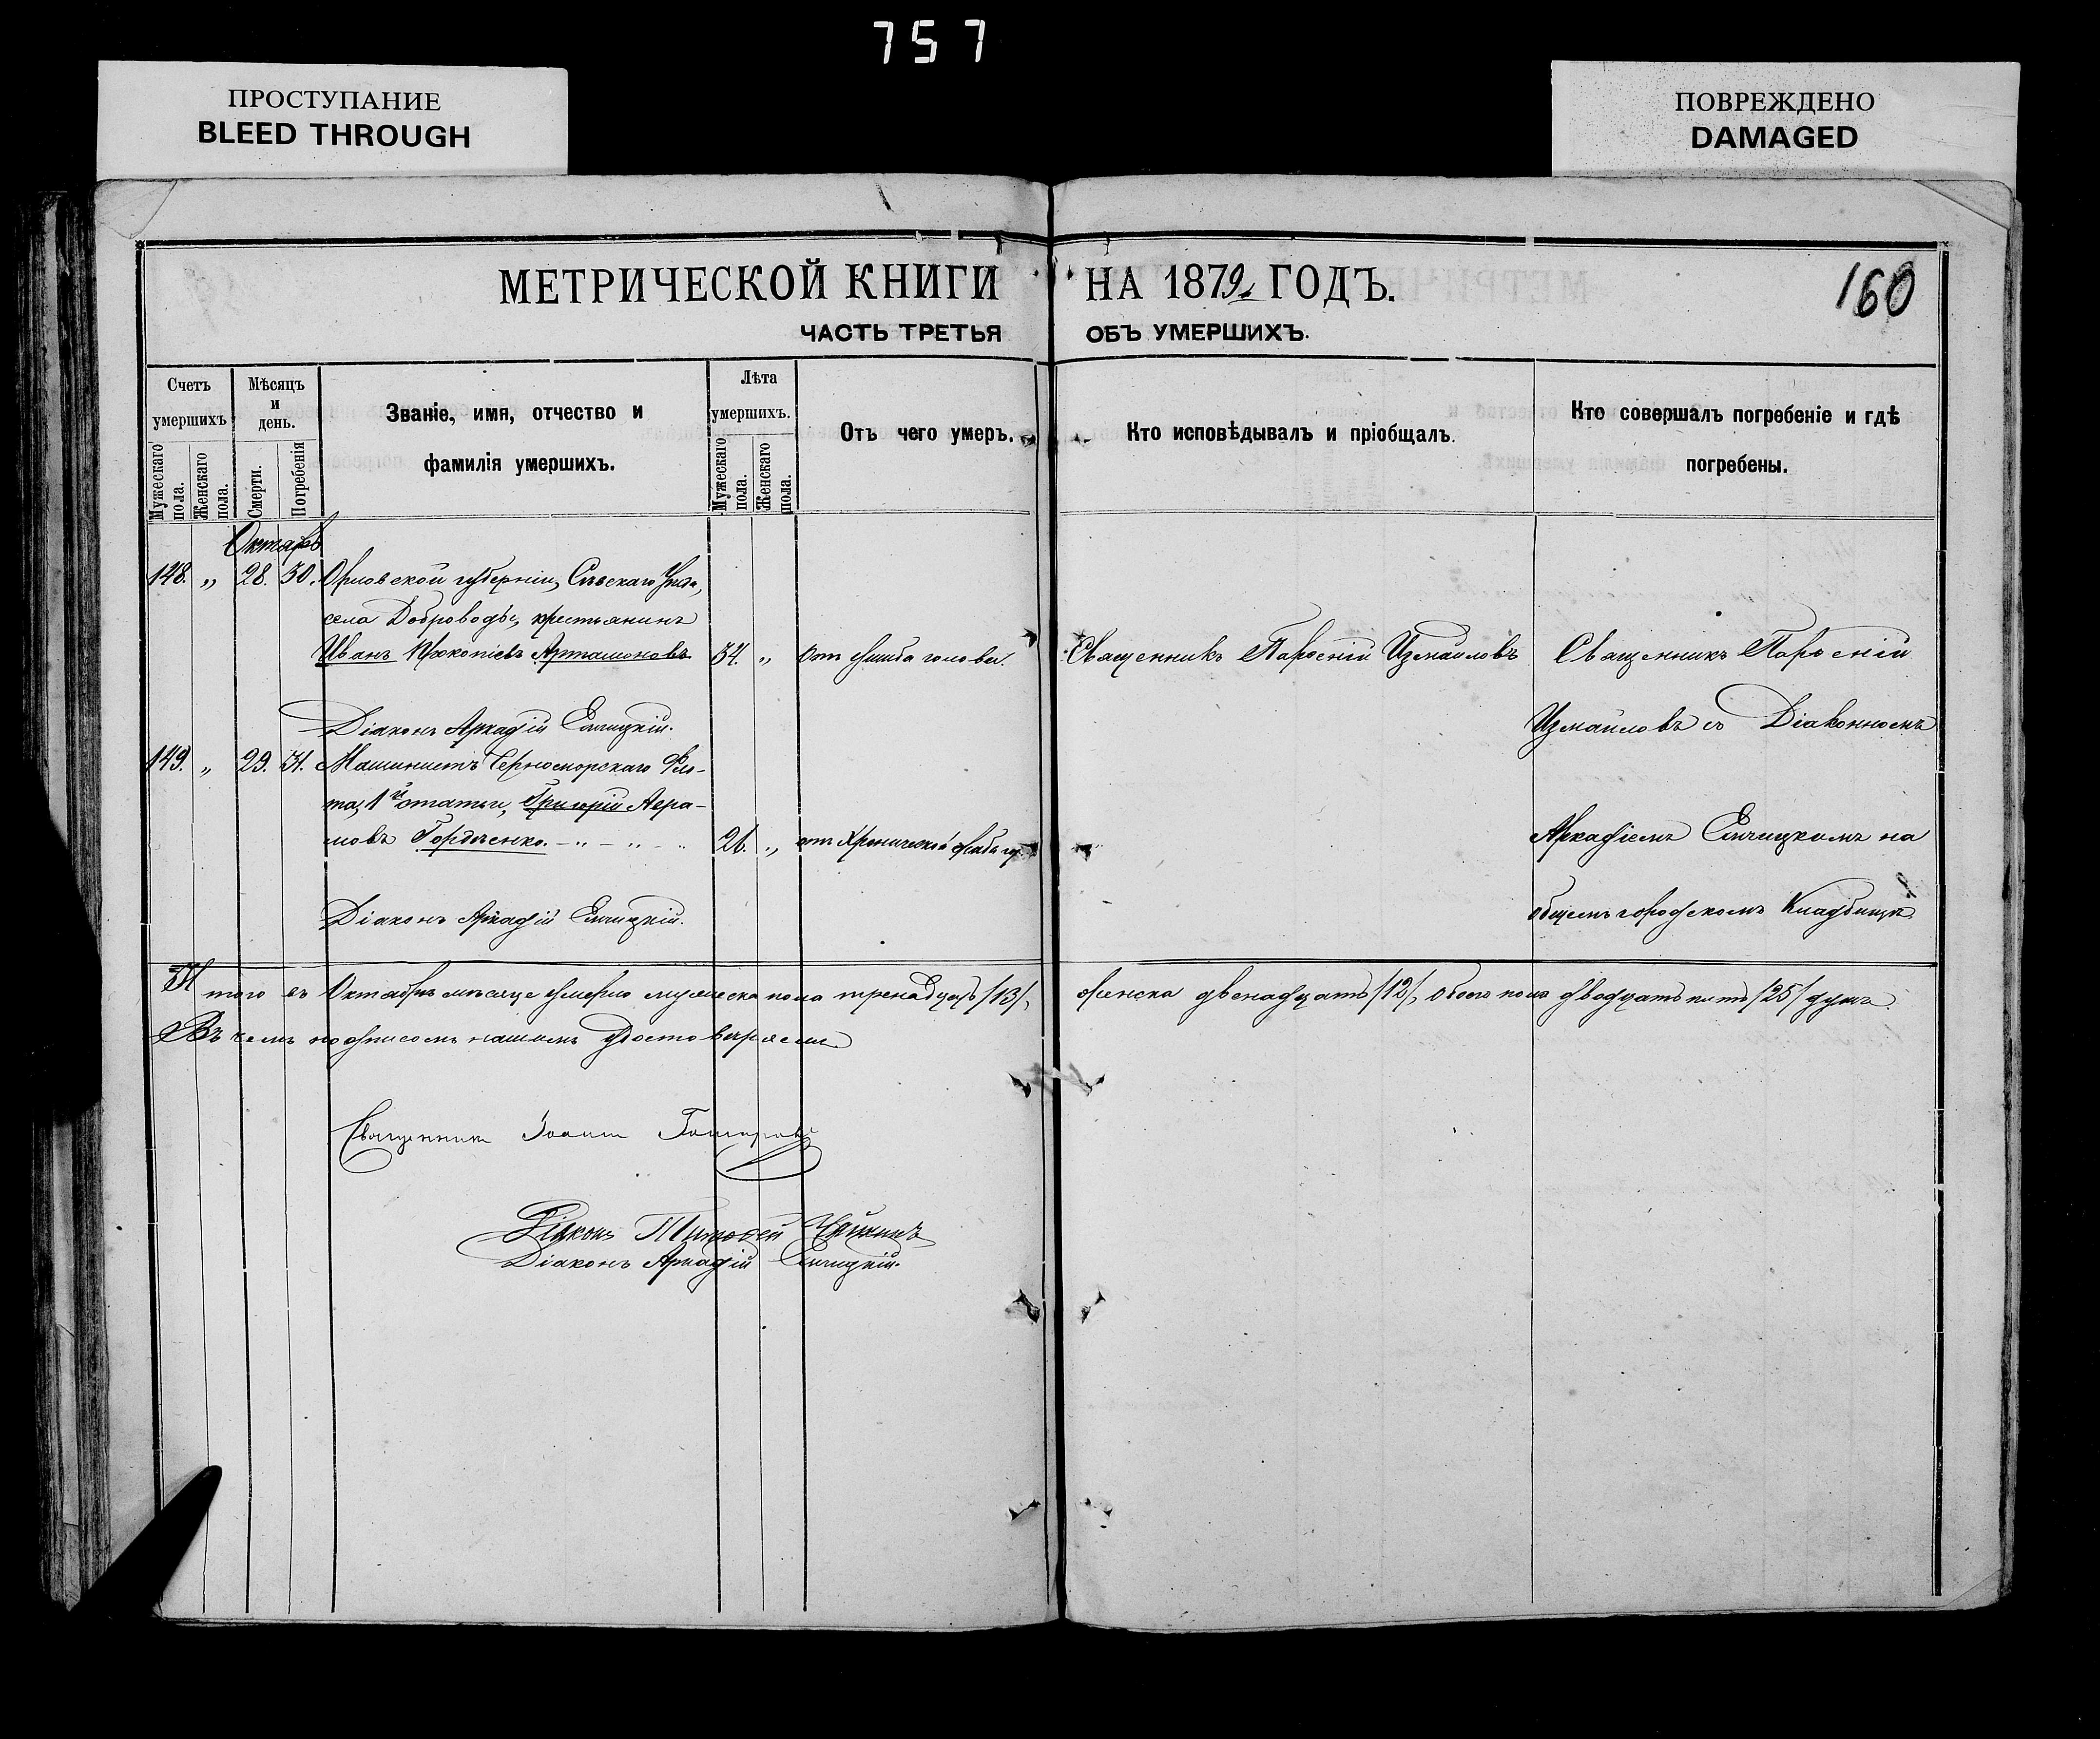 757
ПРОСТУПАНИЕ
BLEED THROUGH
ПОВРЕЖДЕНО
DAMAGED
МЕТРИЧЕСКОЙ КНИГИ НА 1879. ГОДЪ.
160
ЧАСТЬ ТРЕТЬЯ ОБЪ УМЕРШИХЪ.
Счетъ умершихъ
Мужескаго пола.
Женскаго пола.
Мѣсяцъ и день.
Смерти.
Погребенія
Званіе, имя, отчество и
фамилія умершихъ.
Лѣта умершихъ.
Мужескаго пола.
Женскаго пола.
Отъ чего умеръ.
Кто исповѣдывалъ и пріобщалъ.
Кто совершалъ погребеніе и гдѣ
погребены.
Октябрь
148. „ 28. 30. Орловской губерніи, Сѣвскаго Уѣзда,
села Доброводье, крестьянинъ
Иванъ Прокопіевъ Артамоновъ 34. „ отъ ушиба головы. Священникъ Парѳеній Измаиловъ Священникъ Парѳеній
Діаконъ Аркадій
Измаиловъ съ Діакономъ
149. „ 29. 31. Машинистъ Черноморскаго Фло-
та, 1й статьи, Григорій Авра-
мовъ Гордиенко. 26. „ отъ Хронической
Аркадіемъ на
Діаконъ Аркадій
общемъ городскомъ Кладбищѣ.
Итого въ Октябрѣ мѣсяцѣ умерло мужеска пола тренадцать /13/, женска двенадцать /12/, обоего пола двадцать пять /25/ душъ.
Въ чемъ подписомъ нашимъ удостовѣряемъ
Священникъ Іоаннъ
Діаконъ Тимоѳей
Діаконъ Аркадій